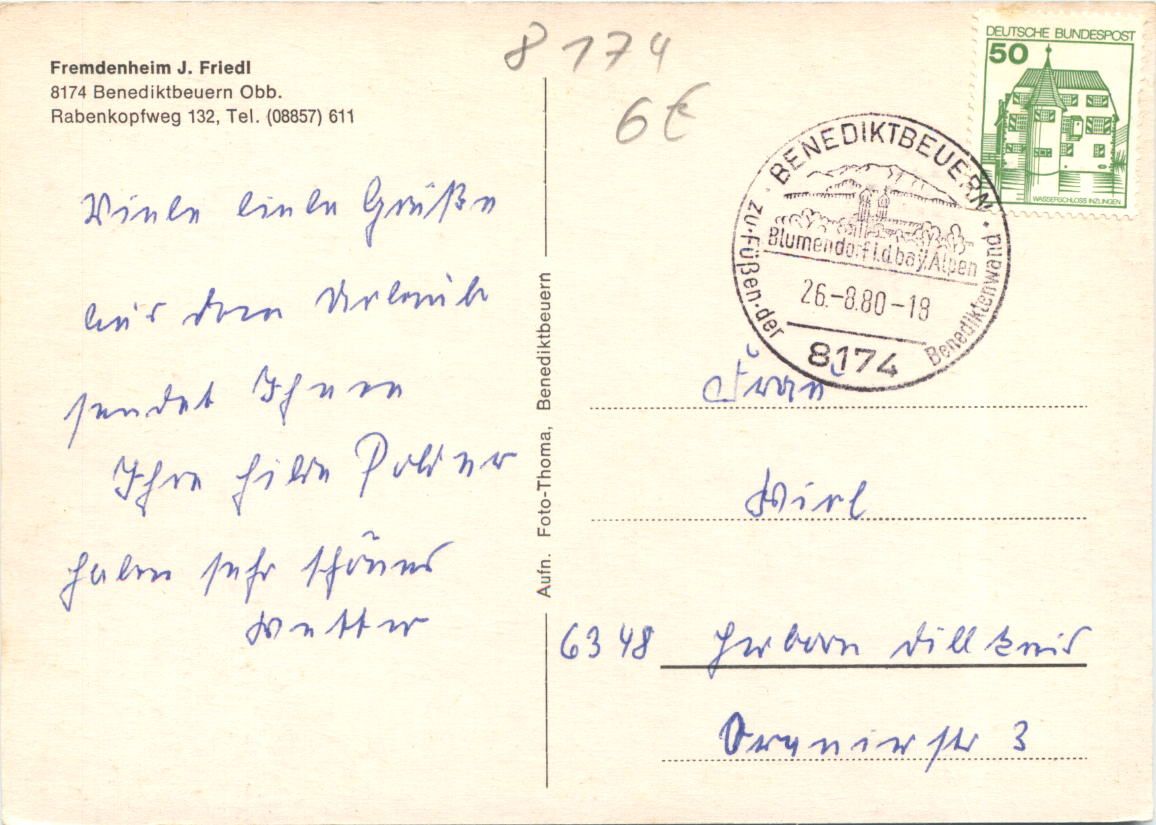 Fremdenheim J. Friedl
8174 Benediktbeuern Obb.
Rabenkopfweg 132, Tel. (08857) 611
Viele liebe Grüße
aus dem Urlaub
sendet Ihnen
Ihre Hilde
haben sehr schönes
Wetter
Aufn. Foto-Thoma, Benediktbeuern
8174
6€
DEUTSCHE BUNDESPOST
50
WASSERSCHLOSS INZLINGEN
BENEDIKTBEUERN
Blumendorf i.d.bay.Alpen
26.-8.80-18
zu·Füßen·der Benediktenwand
8174
Frau
6348 Herborn Dillkreis
Oranierstr 3